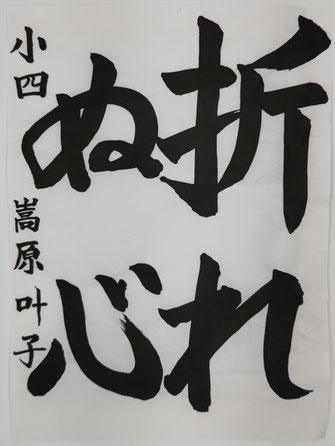 折れ
ぬ心
小四 嵩原叶子